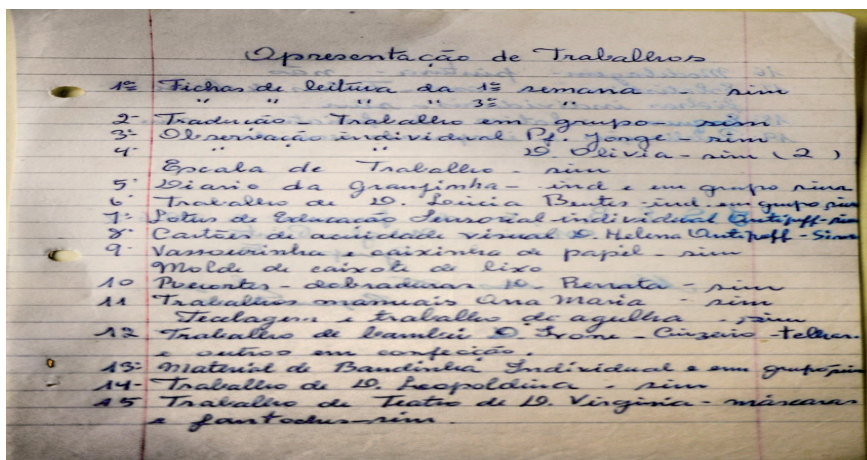 Apresentação de Trabalhos
1º Fichas de leitura da 1ª semana - sim
" " " " 3ª "
2- Tradução - Trabalho em grupo - sim
3- Observação individual Pf. Jorge - sim
4- " " D. Olivia - sim (2)
Escala de Trabalho - sim
5- Diario da Granjinha - ind e em grupo sim
6- Trabalho de D. Lúcia Bentes - ind. em grupo sim
7- Lotus de Educação Sensorial individual Antipoff - sim
8- Cartões de acuidade visual D. Helena Antipoff - Sim
9- Vassourinha e caixinha de papel - sim
Molde de caixote de lixo
10 - dobraduras D. Renata - sim
11 Trabalhos manuais Ana Maria - sim
Tecelagem e trabalho de agulha - sim
12 Trabalho de bambú D. Ivone - Cinzeiro - telhas
e outros em confecção.
13- Material de Bandinha Individual e em grupo sim
14- Trabalho de D. Leopoldina - sim
15 Trabalho de Teatro de D. Virginia - máscaras
e fantoches - sim.